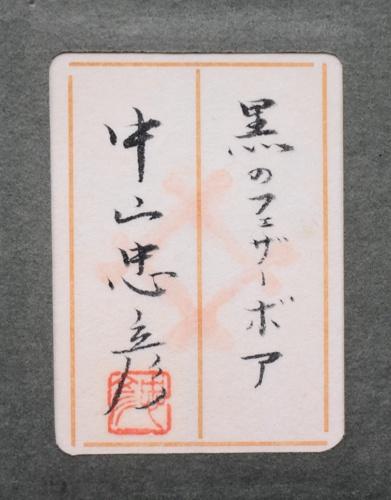 黒のフェザーボア
中山忠彦